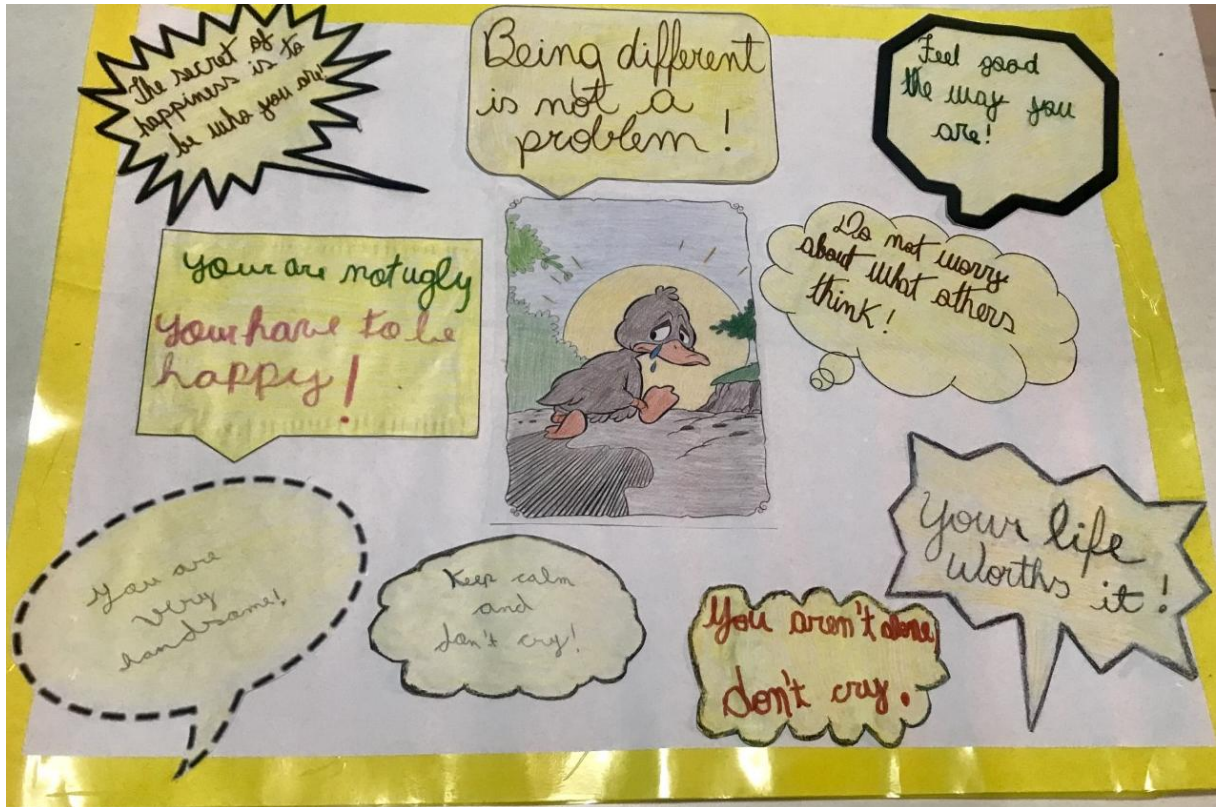 The secret of
happiness is to
be who you are!
Being different
is not a
problem!
Feel good
the way you
are!
Your are not ugly
your have to be
happy!
Do not worry
about what others
think!
You are
very
handsome!
Keep calm
and
don't cry!
You aren't alone,
don't cry.
Your life
Worths it!